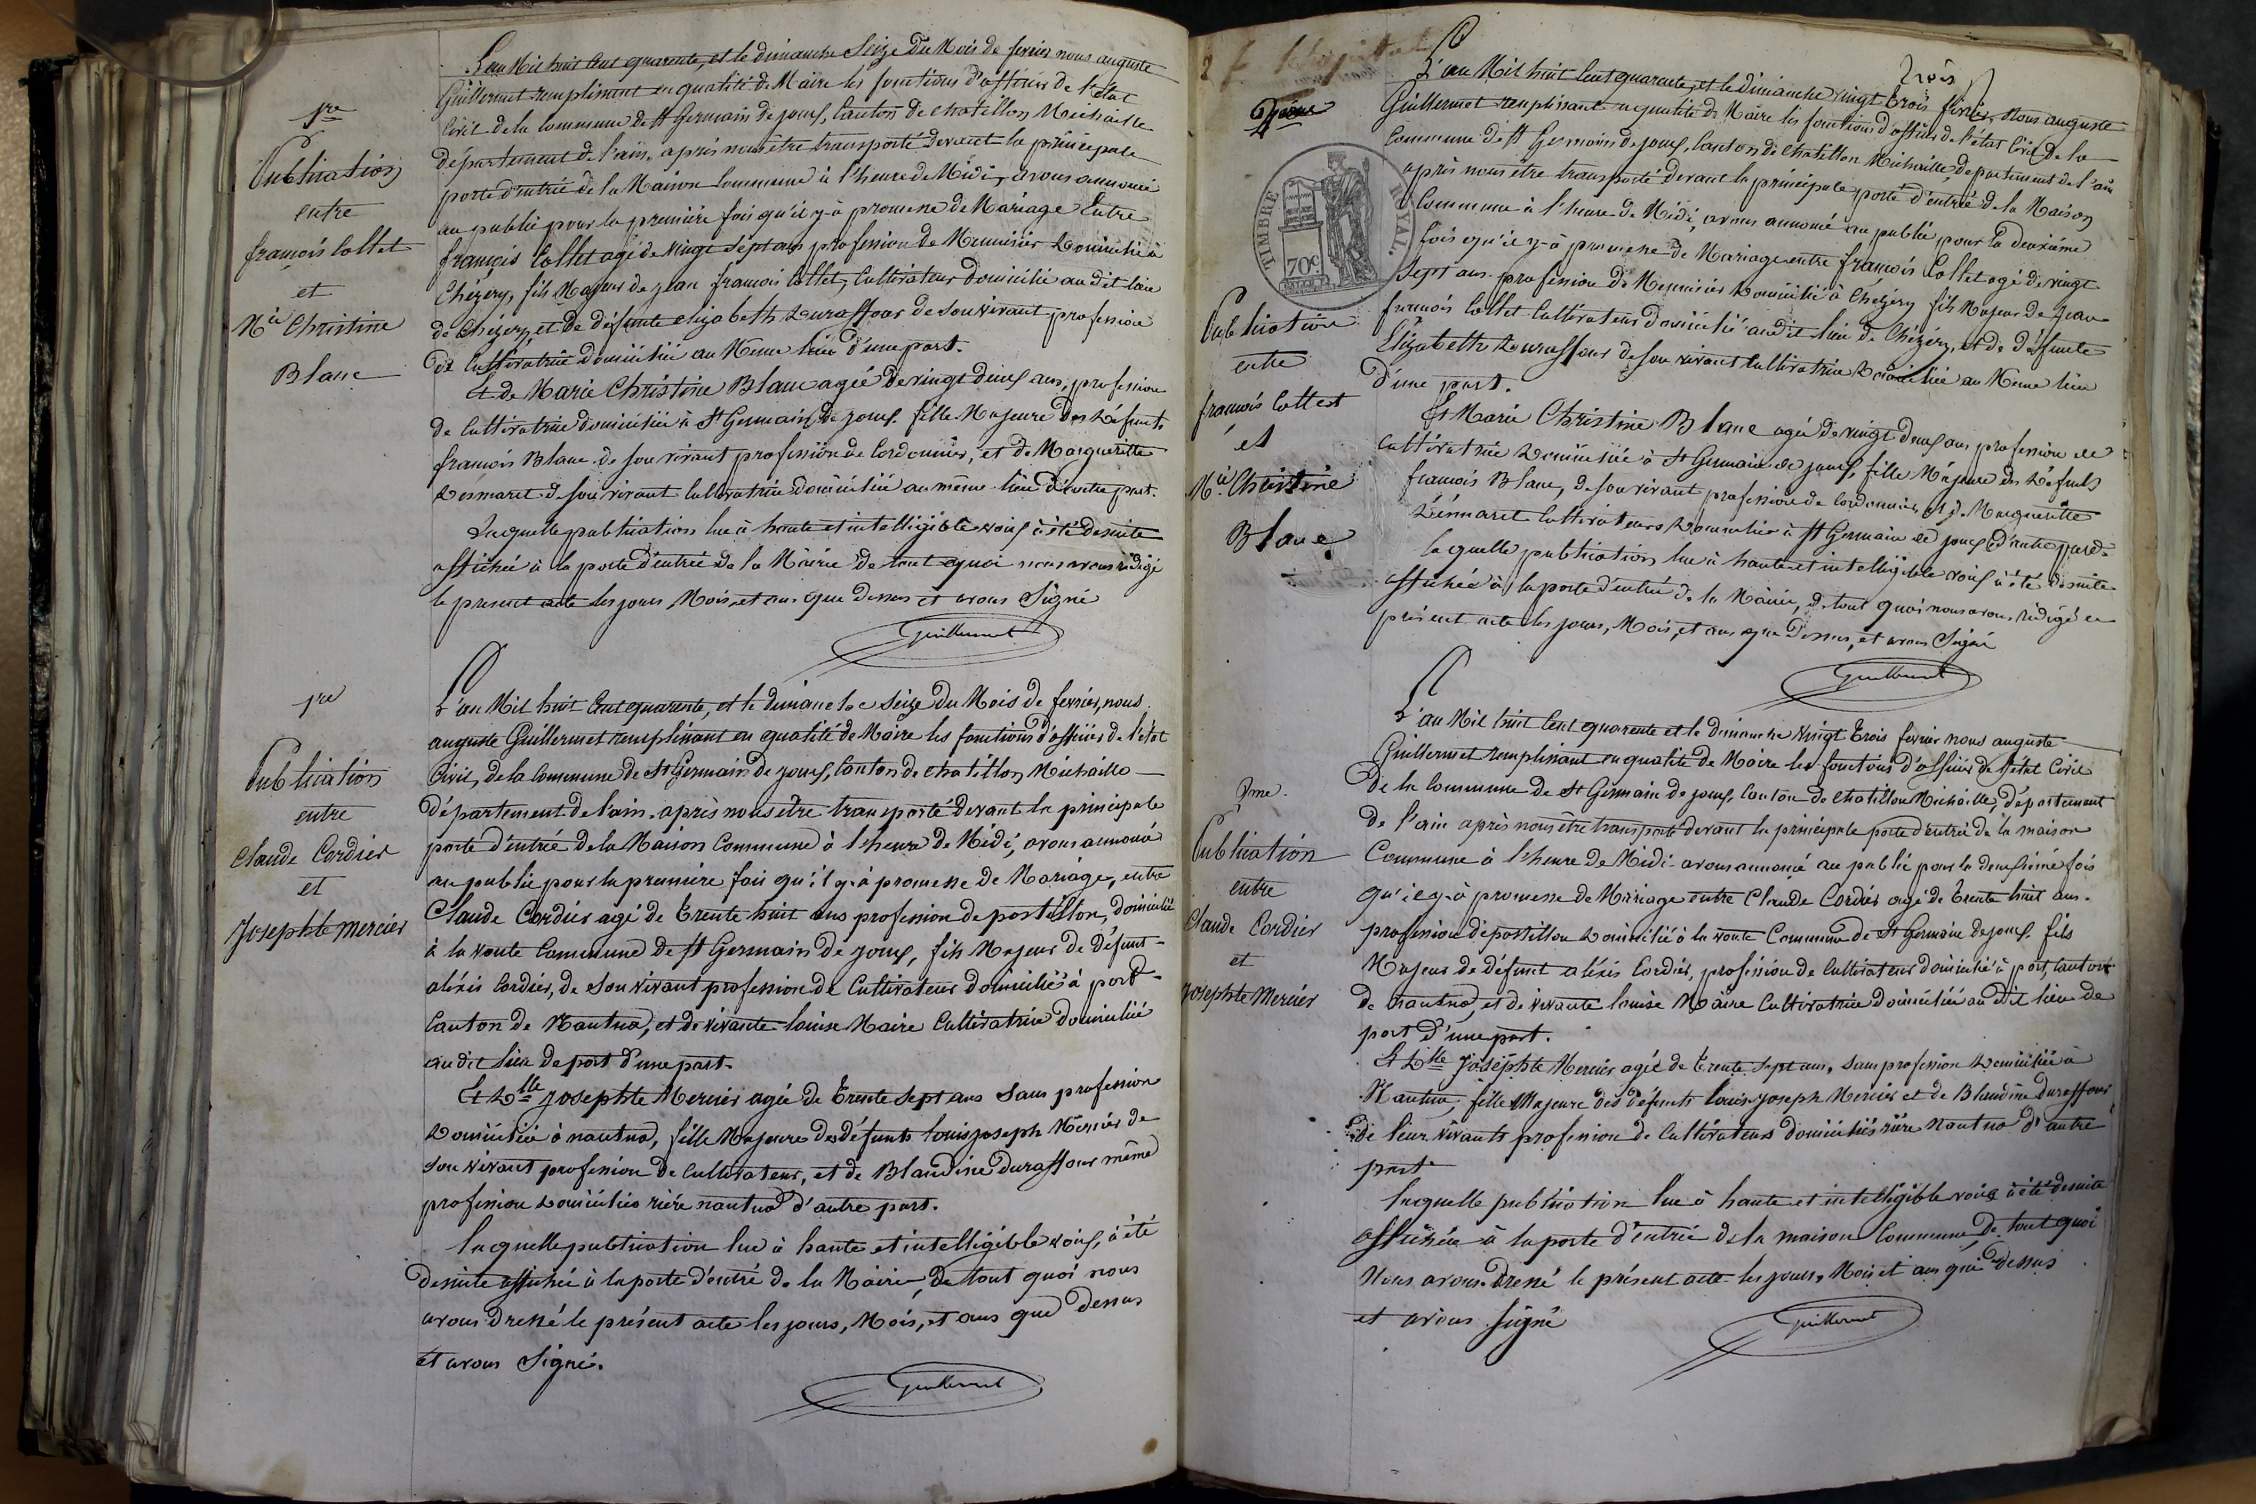 1re
Publication
entre
françois Collet
et
Mie Christine
Blanc
L'an Mil huit Cent quarante, et le dimanche Seize du Mois de fevrier nous auguste
Guillermet remplissant en qualité de Maire les fonctions d'officier de l'état
Civil de la Commune de St Germain de joux, Canton de Chatillon Michaille
département de l'ain, après nous être transporté devant la principale
porte d'entrée de la Maison Commune à l'heure de Midi, avons annoncé
au public pour la première fois qu'il y-à promesse de Mariage Entre
françois Collet agé de vingt sept ans profession de Menuisier Domicilié à
Chézery, fils Majeur de jean françois Collet, Cultivateur Domicilié au dit lieu
de Chézery, et de défunte elizabeth Duraffour de son vivant profession
de Cultivatrice domiciliée au Meme lieu d'une part.
Et de Marie Christine Blanc agée de vingt deux ans, profession
de Cultivatrice domiciliée à St Germain de joux. fille Majeure des Défunts
françois Blanc de son vivant profession de Cordonnier, et de Margueritte
Desmaret de son vivant Cultivatrice domiciliée au même lieu d'autre part.
Laquelle publication lue à haute et intelligible voix à été desuite
affichée à la porte d'entrée de la Mairie de tout quoi nous avons rédigé
le present acte les jours, Mois, et ans que Dessus et avons Signé
Guillermet
1re
Publication
entre
Claude Cordier
et
Josephte Mercier
L'an Mil huit Cent quarante, et le dimanche seize du Mois de fevrier, nous
auguste Guillermet remplissant en qualité de Maire les fonctions d'officier de l'état
Civil, de la Commune de St Germain de joux, Canton de Chatillon Michaille
département de l'ain, après nous être transporté devant la principale
porte d'entrée de la Maison Commune à l'heure de Midi, avons annoncé
au public pour la première fois qu'il y-à promesse de Mariage, entre
Claude Cordier agé de Trente huit ans profession de postillon, domicilié
à la voute Commune de St Germain de joux, fils Majeur de Défunt
aléxis Cordier, de son vivant profession de Cultivateur domicilié à port
Canton de Nantua, et de vivante louise Maire Cultivatrice domiciliée
au dit lieu de port d'une part.
Et Dlle Josephte Mercier agée de Trente Sept ans Sans profession
Domiciliée à nantua, fille Majeure des défunts louis joseph Mercier de
son vivant profession de Cultivateur, et de Blandine Duraffour même
profession Domiciliés rière nantua d'autre part.
laquelle publication lue à haute et intelligible voix, à été
desuite affichée à la porte d'entré de la Mairie, de tout quoi nous
avons Dressé le présent acte les jours, Mois, et ans que dessus
et avons Signé.
Guillermet
2
Trois
TIMBRE ROYAL.
70c
2eme
Publication
entre
françois Collet
et
Mie Christine
Blanc
L'an Mil huit Cent quarante, et le dimanche vingt Trois fevrier, Nous auguste
Guillermet remplissant en qualité de Maire les fonctions d'officier de l'état Civil, de la
Commune de St Germain de joux, Canton de Chatillon Michaille, département de l'ain
après nous être transporté devant la principale porte d'entrée de la Maison
Commune à l'heure de Midi, avons annoncé au public pour la deuxième
fois qu'il y-à promesse de Mariage entre françois Collet agé de vingt
Sept ans profession de Menuisier Domicilié à Chézery fils Majeur de Jean
françois Collet Cultivateur domicilié audit lieu de Chézery, et de défunte
Elizabeth Duraffour de son vivant Cultivatrice Domiciliée au Meme lieu
d'une part.
Et Marie Christine Blanc agée de vingt deux ans profession de
Cultivatrice Domiciliée à St Germain de joux, fille Majeure des Défunts
françois Blanc, de son vivant profession de Cordonnier, et de Marguerite
Desmaret Cultivateurs Domiciliés à St Germain de joux d'autre part.
laquelle publication lue à haute et intelligible voix à été desuite
affichée à la porte d'entrée de la Mairie, de tout quoi nous avons rédigé ce
présent acte les jours, Mois, et ans que Dessus, et avons Signé
Guillermet
2me
Publication
entre
Claude Cordier
et
Josephte Mercier
L'an Mil huit Cent quarante et le dimanche vingt Trois fevrier nous auguste
Guillermet remplissant en qualité de Maire les fonctions d'officier de l'état Civil
de la Commune de St Germain de joux, Canton de Chatillon Michaille, département
de l'ain après nous être transporté devant la principale porte d'entrée de la maison
Commune à l'heure de Midi avons annoncé au public pour la deuxième fois
qu'il y-à promesse de Mariage entre Claude Cordier agé de Trente huit ans.
profession de postillon Domicilié à la voute Commune de St Germain de joux. fils
Majeur de défunt aléxis Cordier, profession de Cultivateur domicilié à port, Canton
de nantua, et de vivante louise Maire Cultivatrice domiciliée au dit lieu de
port d'une part.
Et Dlle Joséphte Mercier agée de Trente Sept ans, sans profession Domiciliée à
Nantua, fille Majeure des défunts louis joseph Mercier et de Blandine Duraffour
de leur vivants profession de Cultivateurs domiciliés rière nantua d'autre
part.
laquelle publication lue à haute et intelligible voix à été desuite
affichée à la porte d'entrée de la maison Commune, de tout quoi
Nous avons Dressé le présent acte les jours, Mois et ans que dessus
et avons signé
Guillermet